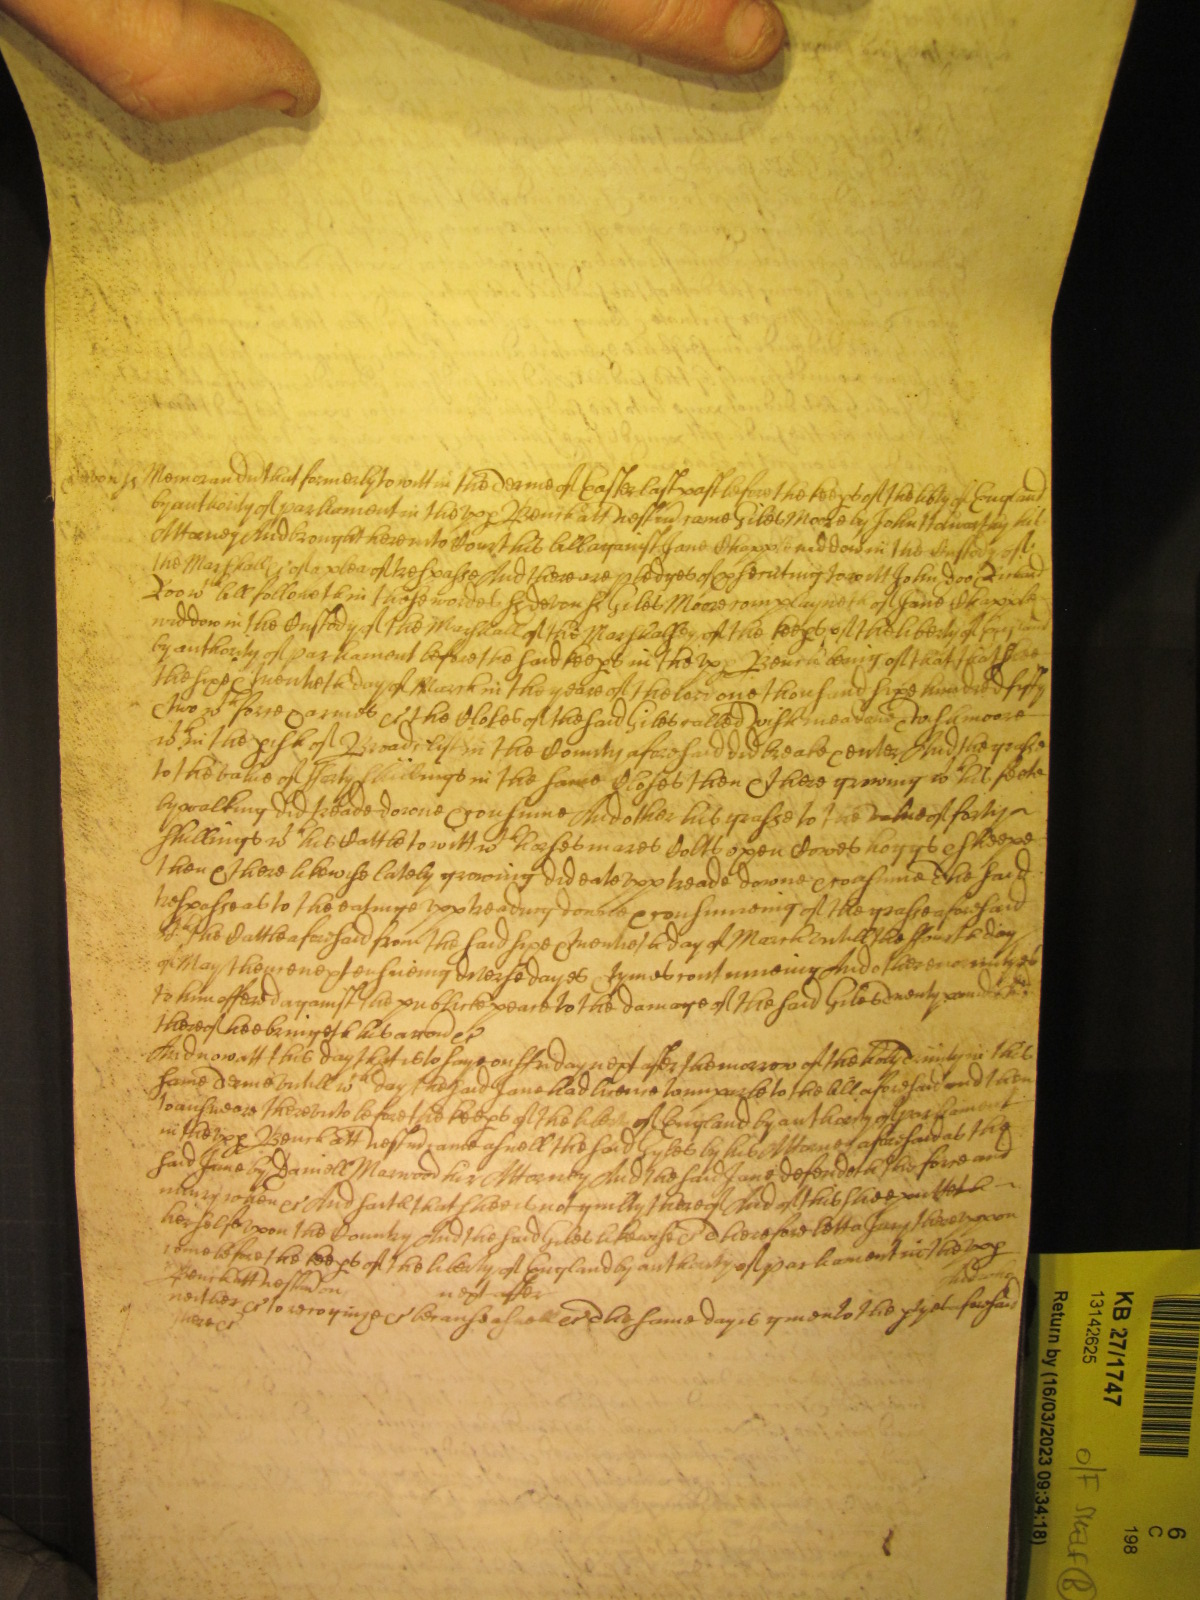 Devon ss Memorand that formerly to witt in the Terme of Easter last past before the keeps of the libty of England
by authority of parliament in the upp Bench att Westmr came Giles Moore by John his
Attorney And brought here into Court his bill against Jane Chapple widdow in the Custody of
the Marshall &c of a plea of trespasse And there are pledges of psecuting to witt John Doo & Richard
Roo wch bill followeth in these wordes ss Devon ss Giles Moore complayneth of Jane Chapple
widdow in the Custody of the Marshall of the Marshalsey of the keeps of the liberty of England
by authority of parliament before the said keeps in the upp Bench being of that that shee
the sixe & twentieth day of March in the yeare of the lord one thousand sixe hundred fifty
& two wth force & armes &c the Closes of the said Giles called meadow &
wthin the pish of Broadclist in the County aforesaid did breake & enter And the grasse
to the value of fforty shillings in the same Closes then & there growing wth his feete
by walking did treade downe & consume And other his grasse to the value of forty
shillings wth his Cattle to witt wth horses mares Colts oxen Cowes hoggs & sheepe
then & there likewise lately growing did eate upp treade downe & consume The said
trespasse as to the eatinge upp treading downe & consumeing of the grasse aforesaid
wth the Cattle aforesaid from the said sixe & twentieth day of March untill the first day
of May then next ensueing diverse dayes & tymes continueing And other enormityes
to him offered against the publicke peace to the damage of the said Giles twenty pounds And
thereof hee bringeth his &c
And now att this day that is to say on ffriday next after the morrow of the holy Trinity in this
same Terme untill wch day the said Jane had licence to imparle to the bill aforesaid and then
to answeare thereunto before the keeps of the libty of England by authority of parliament
in the upp Bench att Westmr came aswell the said Gyles by his Attorney aforesaid as the
said Jane by Daniell Marwood her Attorney And the said Jane defendeth the force and
iniury when &c And saith that shee is not guilty thereof And of this shee putteth
herselfe upon the Country And the said Giles likewise &c Therefore lett a Jury thereupon
come before the keeps of the liberty of England by authority of parliament in the upp
Bench att Westmr on next after And who
neither &c to recognize &c because aswell &c The same day is given to the ptyes aforesaid
there &c
KB 27/1747
13142625
Return by (16/03/2023 09:34:18)
6
C
198